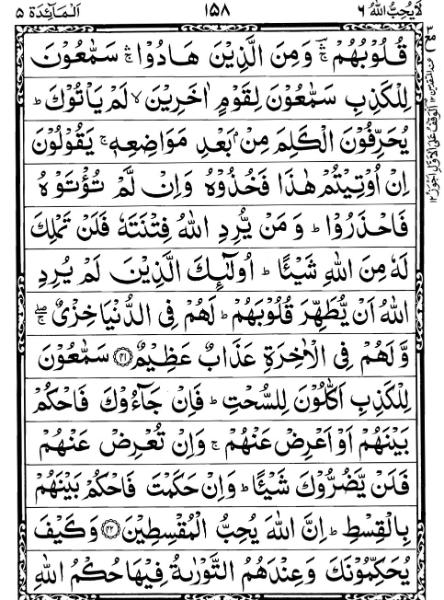 المآئدة ۵ ١٥٨ لا يحب الله ٦
قُلُوْبُهُمْ ۛۚ وَمِنَ الَّذِيْنَ هَادُوْا ۛۚ سَمّٰعُوْنَ
لِلْكَذِبِ سَمّٰعُوْنَ لِقَوْمٍ اٰخَرِيْنَ ۙ لَمْ يَاْتُوْكَ ؕ
يُحَرِّفُوْنَ الْكَلِمَ مِنْۢ بَعْدِ مَوَاضِعِهٖ ۚ يَقُوْلُوْنَ
اِنْ اُوْتِيْتُمْ هٰذَا فَخُذُوْهُ وَاِنْ لَّمْ تُؤْتَوْهُ
فَاحْذَرُوْا ؕ وَمَنْ يُّرِدِ اللّٰهُ فِتْنَتَهٗ فَلَنْ تَمْلِكَ
لَهٗ مِنَ اللّٰهِ شَيْـًٔا ؕ اُولٰٓئِكَ الَّذِيْنَ لَمْ يُرِدِ
اللّٰهُ اَنْ يُّطَهِّرَ قُلُوْبَهُمْ ؕ لَهُمْ فِي الدُّنْيَا خِزْيٌ ۖۚ
وَّلَهُمْ فِي الْاٰخِرَةِ عَذَابٌ عَظِيْمٌ ﴿۴۱﴾ سَمّٰعُوْنَ
لِلْكَذِبِ اَكّٰلُوْنَ لِلسُّحْتِ ؕ فَاِنْ جَآءُوْكَ فَاحْكُمْ
بَيْنَهُمْ اَوْ اَعْرِضْ عَنْهُمْ ۚ وَاِنْ تُعْرِضْ عَنْهُمْ
فَلَنْ يَّضُرُّوْكَ شَيْـًٔا ؕ وَاِنْ حَكَمْتَ فَاحْكُمْ بَيْنَهُمْ
بِالْقِسْطِ ؕ اِنَّ اللّٰهَ يُحِبُّ الْمُقْسِطِيْنَ ﴿۴۲﴾ وَكَيْفَ
يُحَكِّمُوْنَكَ وَعِنْدَهُمُ التَّوْرٰىةُ فِيْهَا حُكْمُ اللّٰهِ